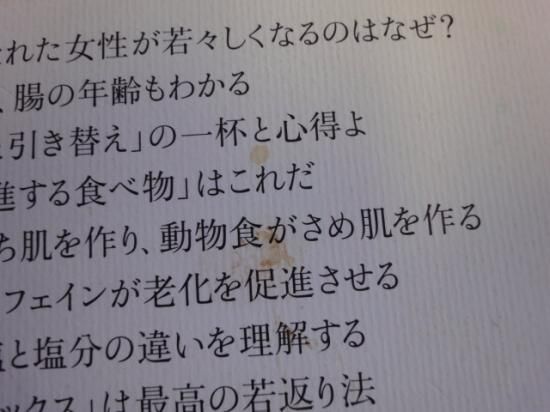 れた女性が若々しくなるのはなぜ?
、腸の年齢もわかる
引き替え」の一杯と心得よ
進する食べ物」はこれだ
ち肌を作り、動物食がさめ肌を作る
フェインが老化を促進させる
塩と塩分の違いを理解する
ックス」は最高の若返り法